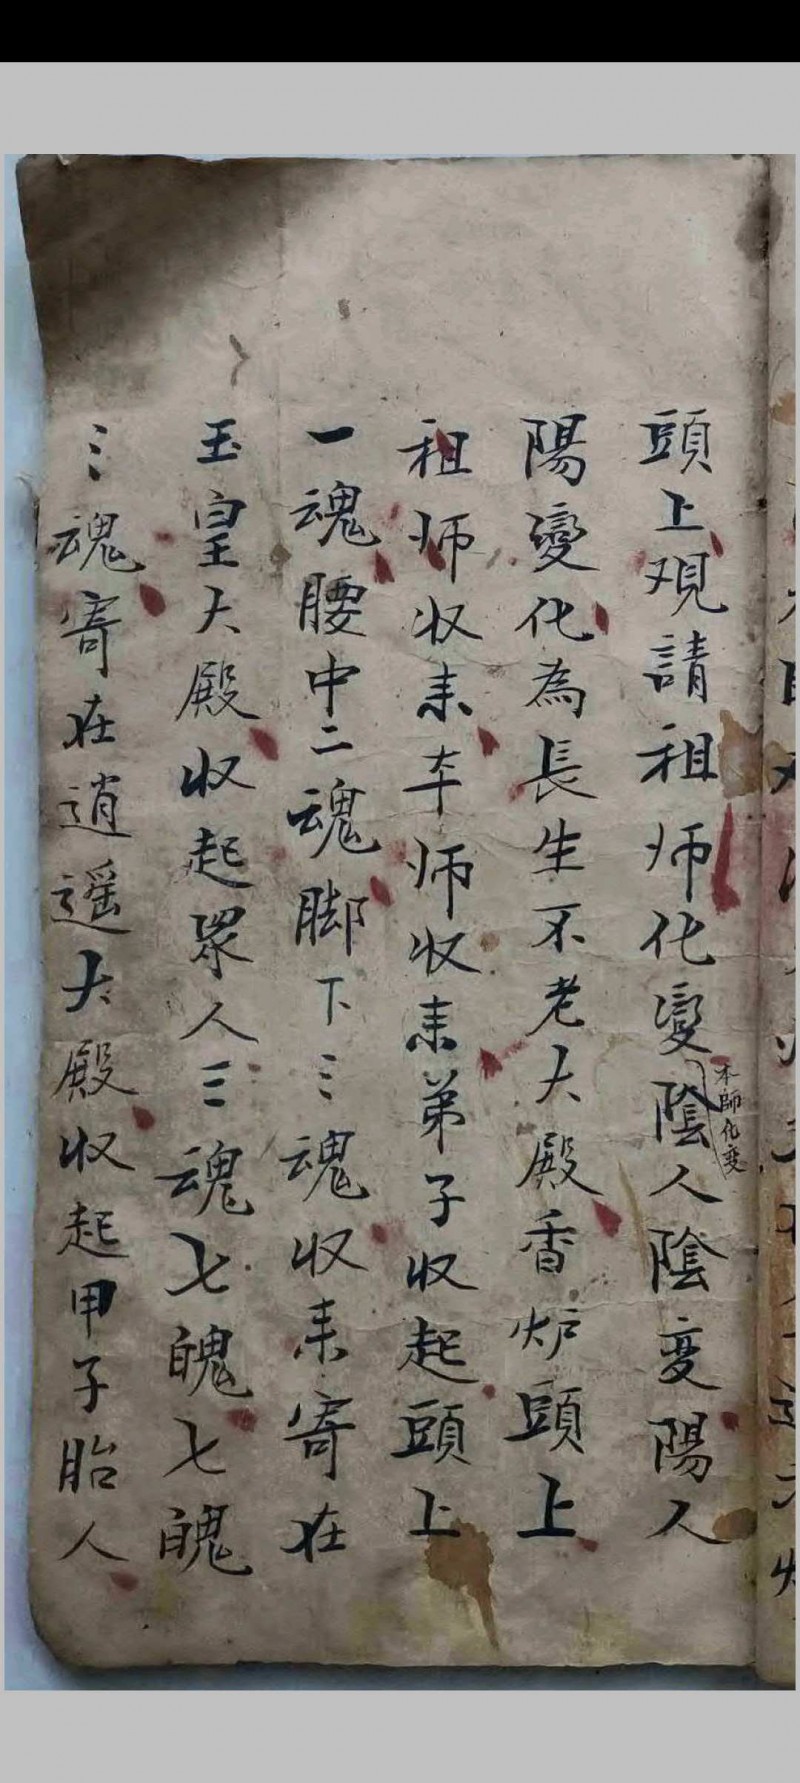 頭上覌請祖师化變陰人陰变陽人
本師化变
陽變化為長生不老大殿香炉頭上
祖师收来本师收来弟子收起頭上
一魂腰中二魂脚下三魂收来寄在
玉皇大殿收起眾人三魂七魄七魄
三魂寄在逍遥大殿收起甲子胎人